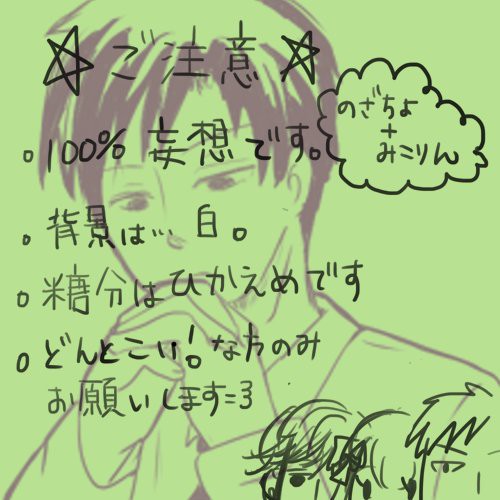 ☆ご注意☆
のざちよ
+
みこりん
。100% 妄想です。
。背景は… 白。
。糖分はひかえめです
。どんとこい!な方のみ
お願いします=3